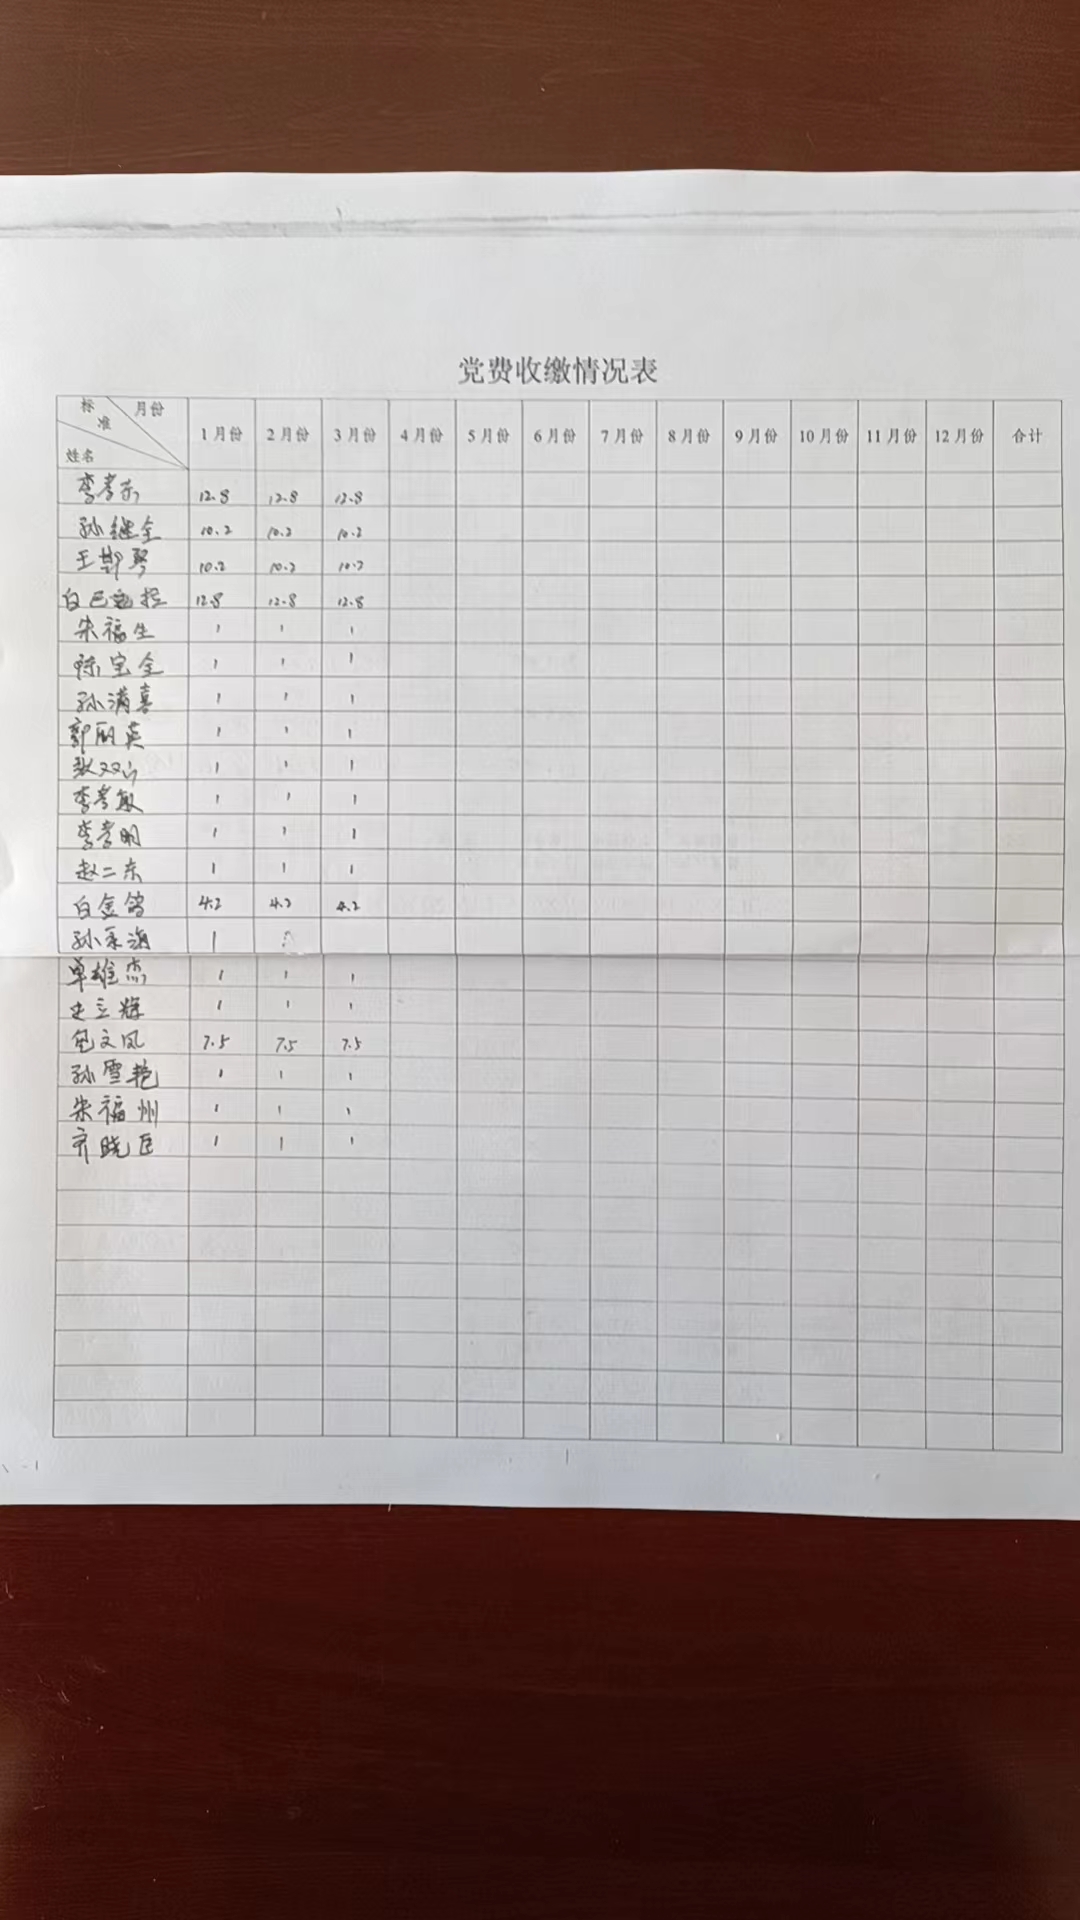 党费收缴情况表
标准 月份 姓名 1月份 2月份 3月份 4月份 5月份 6月份 7月份 8月份 9月份 10月份 11月份 12月份 合计
李孝东 12.8 12.8 12.8
孙继全 10.2 10.2 10.2
王斯琴 10.2 10.2 10.2
白 12.8 12.8 12.8
朱福生 1 1 1
陈宝全 1 1 1
孙满喜 1 1 1
郭丽英 1 1 1
1 1 1
李孝敏 1 1 1
李孝明 1 1 1
赵二东 1 1 1
白金鸽 4.2 4.2 4.2
孙 海 1
单雄杰 1 1 1
史立辉 1 1 1
包文凤 7.5 7.5 7.5
孙雪艳 1 1 1
朱福州 1 1 1
齐晓臣 1 1 1